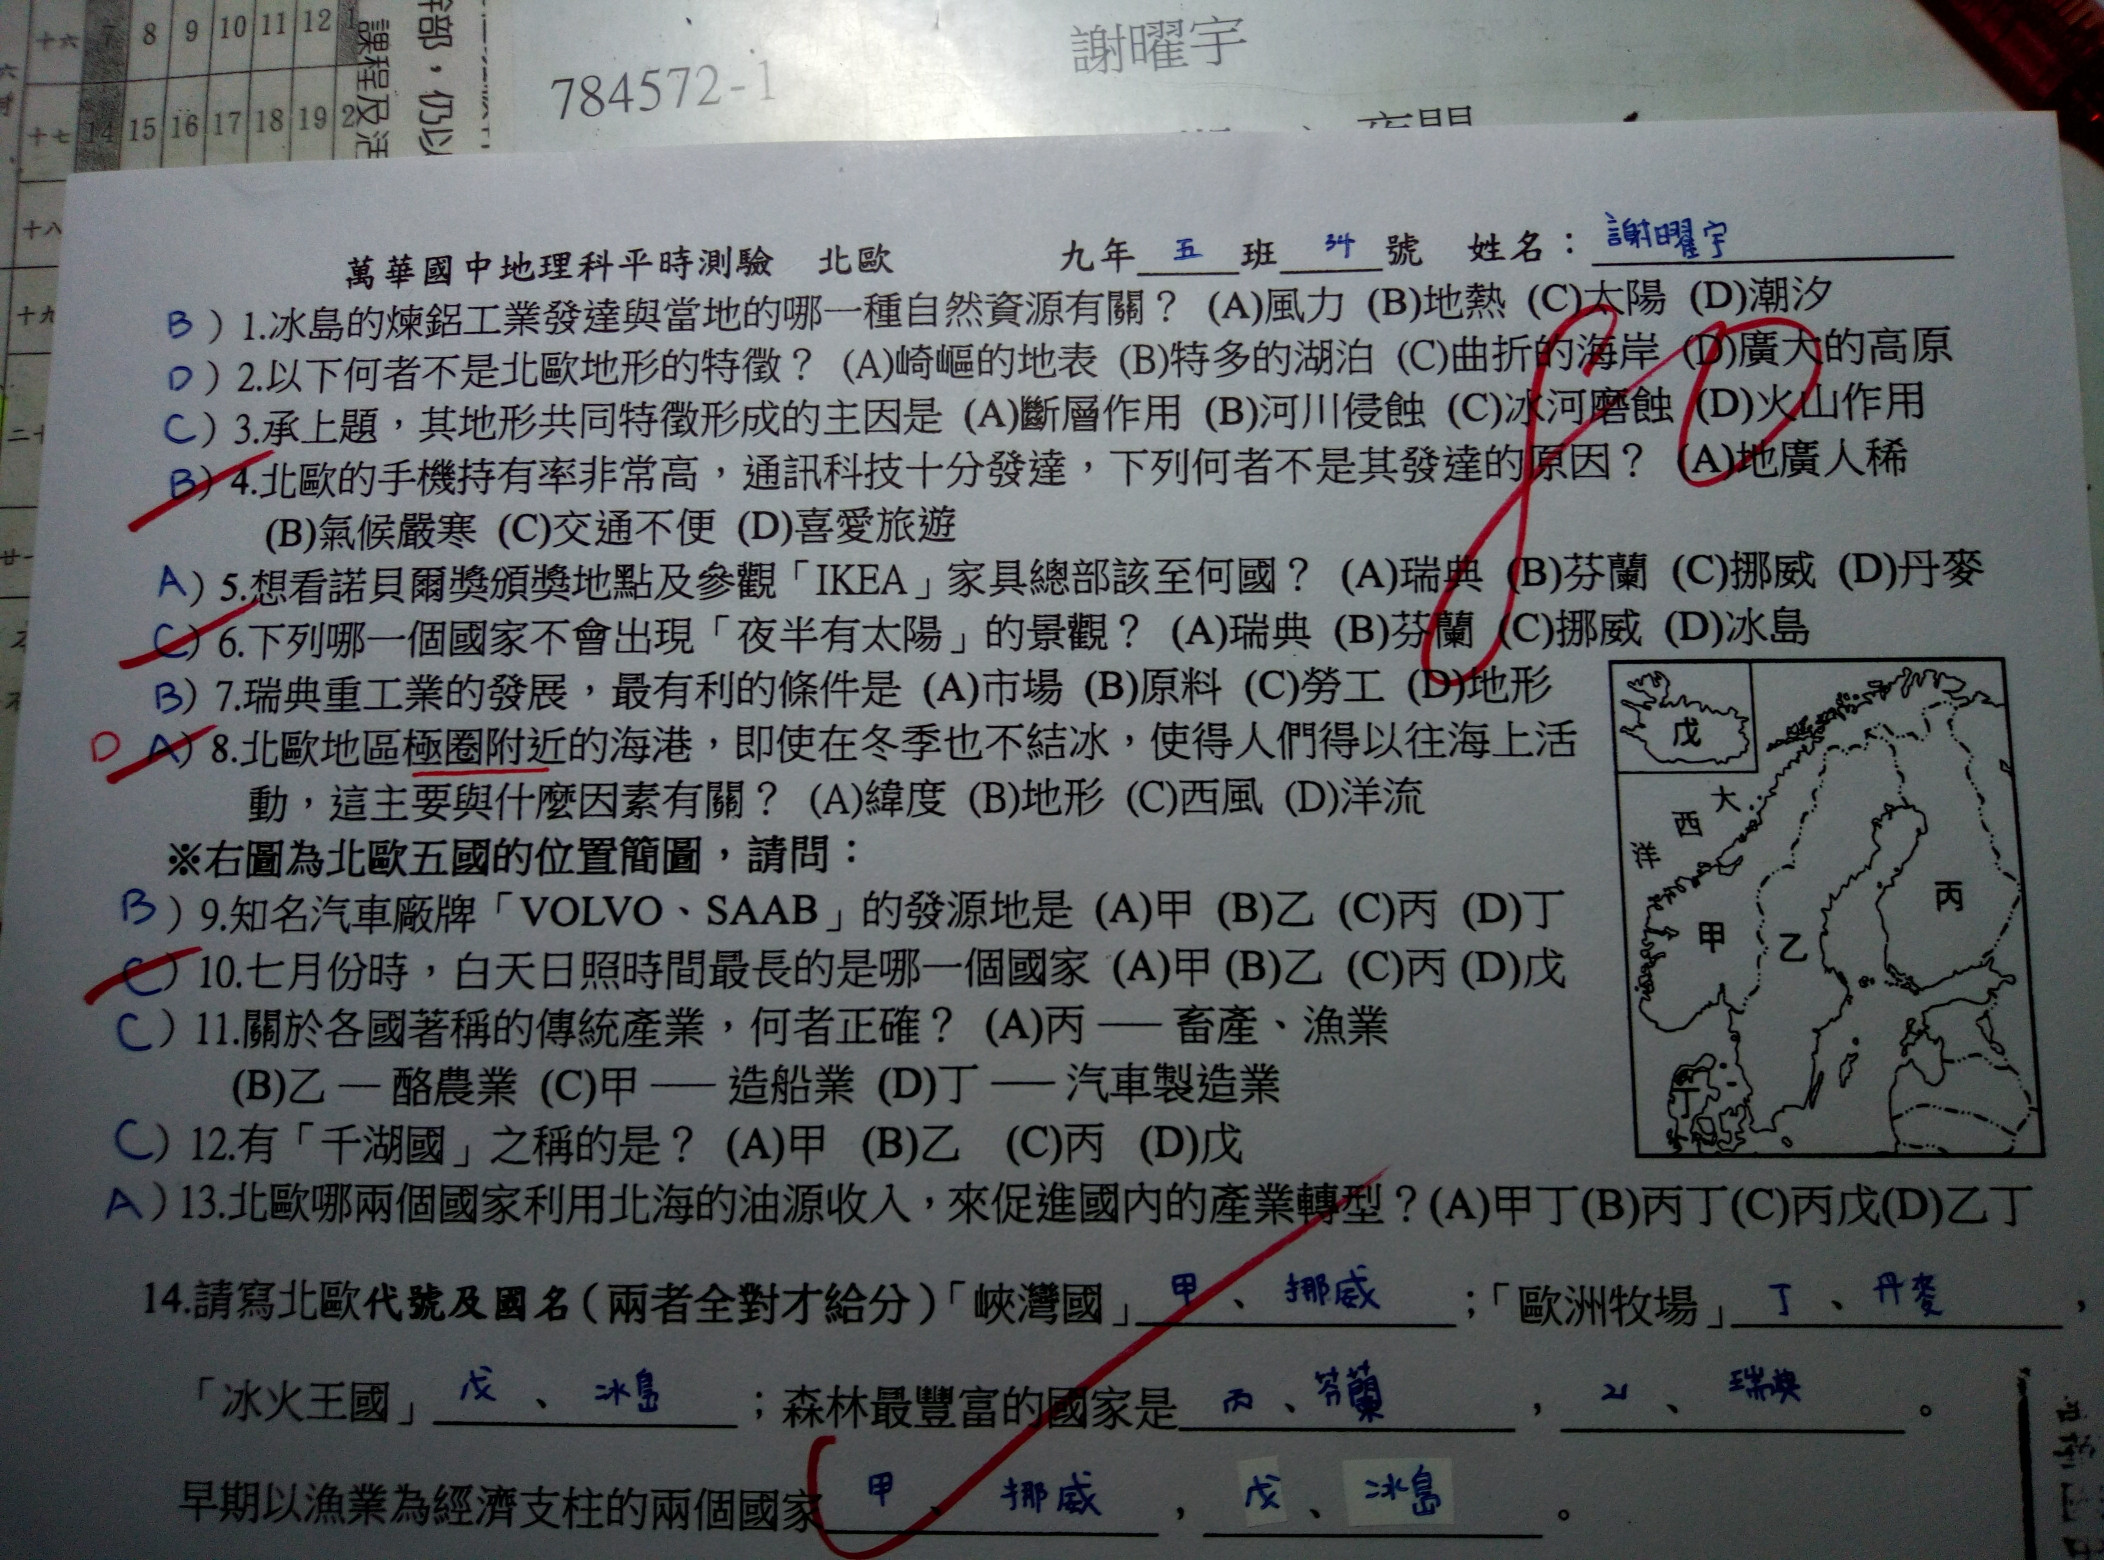 十六 7 8 9 10 11 12
十七 14 15 16 17 18 19 2
十八
十九
課程及活
部，仍以
784572-1
謝曜宇
萬華國中地理科平時測驗 北歐 九年 五 班 34 號 姓名：謝曜宇
B）1.冰島的煉鋁工業發達與當地的哪一種自然資源有關？ (A)風力 (B)地熱 (C)太陽 (D)潮汐
D）2.以下何者不是北歐地形的特徵？ (A)崎嶇的地表 (B)特多的湖泊 (C)曲折的海岸 (D)廣大的高原
C）3.承上題，其地形共同特徵形成的主因是 (A)斷層作用 (B)河川侵蝕 (C)冰河磨蝕 (D)火山作用
B）4.北歐的手機持有率非常高，通訊科技十分發達，下列何者不是其發達的原因？ (A)地廣人稀
(B)氣候嚴寒 (C)交通不便 (D)喜愛旅遊
80
A）5.想看諾貝爾獎頒獎地點及參觀「IKEA」家具總部該至何國？ (A)瑞典 (B)芬蘭 (C)挪威 (D)丹麥
C）6.下列哪一個國家不會出現「夜半有太陽」的景觀？ (A)瑞典 (B)芬蘭 (C)挪威 (D)冰島
B）7.瑞典重工業的發展，最有利的條件是 (A)市場 (B)原料 (C)勞工 (D)地形
D A）8.北歐地區極圈附近的海港，即使在冬季也不結冰，使得人們得以往海上活
動，這主要與什麼因素有關？ (A)緯度 (B)地形 (C)西風 (D)洋流
※右圖為北歐五國的位置簡圖，請問：
B）9.知名汽車廠牌「VOLVO、SAAB」的發源地是 (A)甲 (B)乙 (C)丙 (D)丁
C）10.七月份時，白天日照時間最長的是哪一個國家 (A)甲 (B)乙 (C)丙 (D)戊
C）11.關於各國著稱的傳統產業，何者正確？ (A)丙 — 畜產、漁業
(B)乙 — 酪農業 (C)甲 — 造船業 (D)丁 — 汽車製造業
C）12.有「千湖國」之稱的是？ (A)甲 (B)乙 (C)丙 (D)戊
A）13.北歐哪兩個國家利用北海的油源收入，來促進國內的產業轉型？(A)甲丁(B)丙丁(C)丙戊(D)乙丁
戊
大
西
洋
甲
乙
丙
丁
14.請寫北歐代號及國名（兩者全對才給分）「峽灣國」甲、挪威；「歐洲牧場」丁、丹麥，
「冰火王國」戊、冰島；森林最豐富的國家是丙、芬蘭，乙、瑞典。
早期以漁業為經濟支柱的兩個國家甲、挪威，戊、冰島。